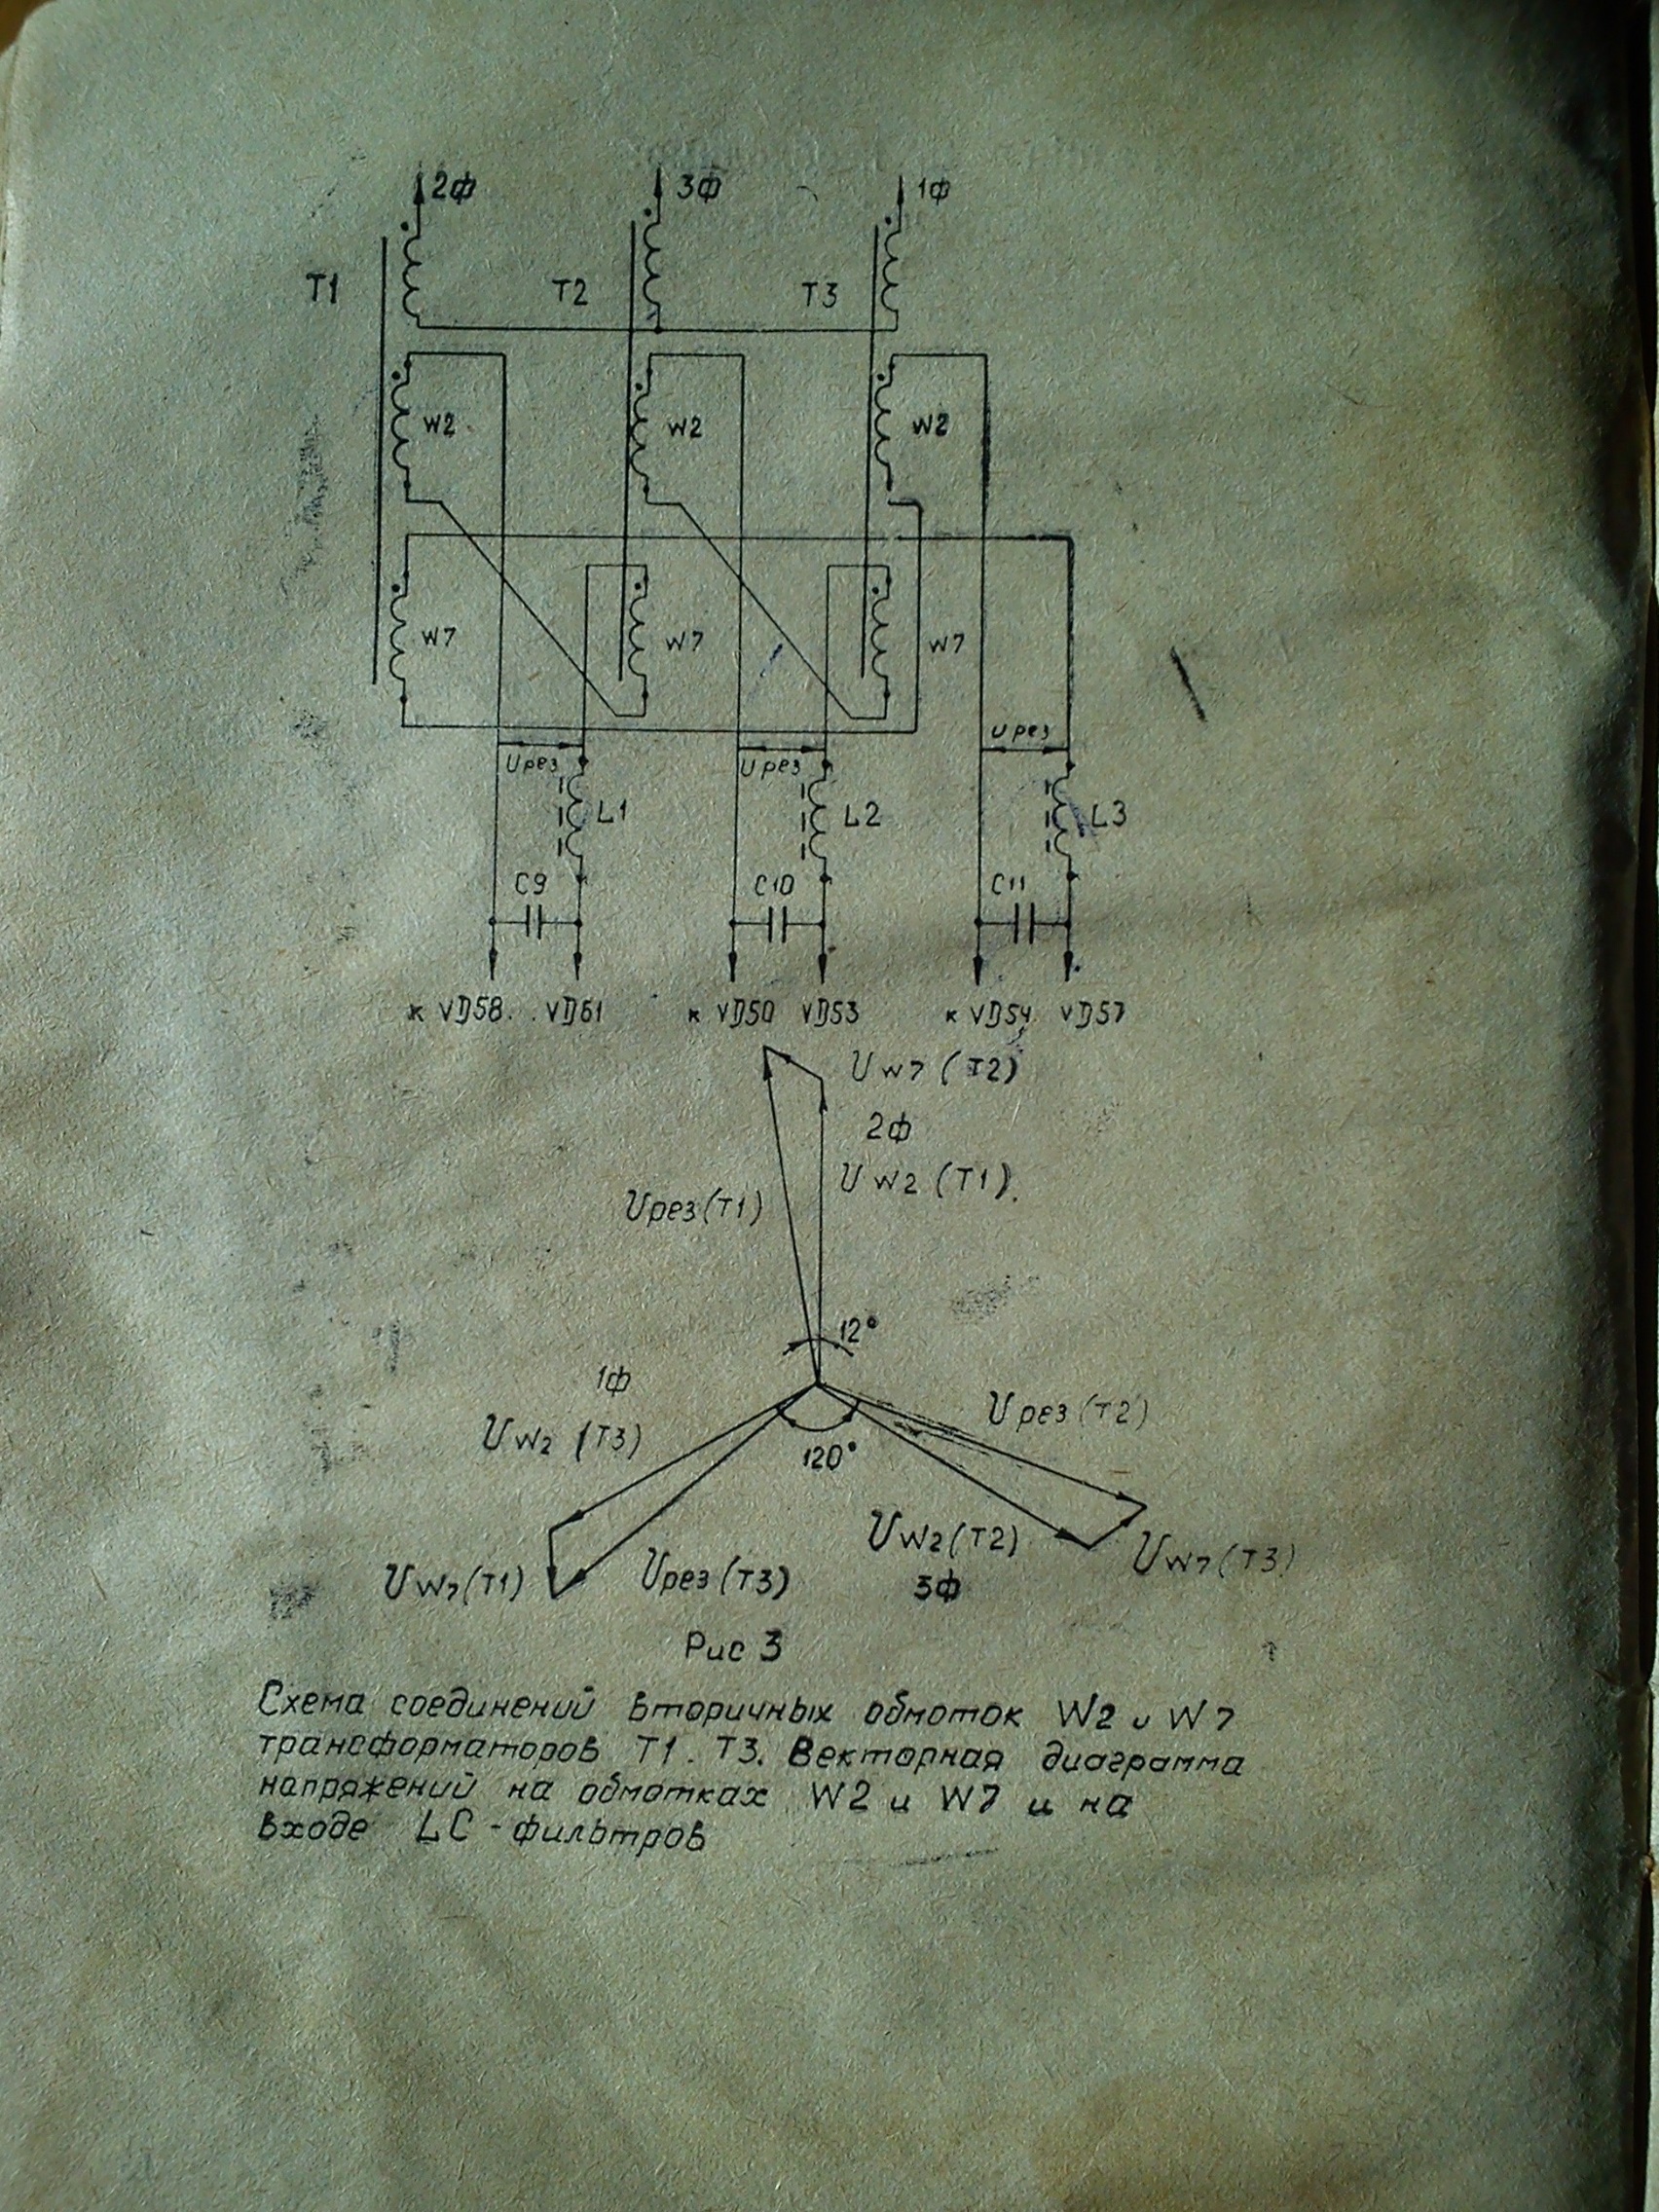 2ф 3ф 1ф
T1 T2 T3
W2 W2 W2
W7 W7 W7
Uрез Uрез Uрез
L1 L2 L3
C9 C10 C11
к VD58. . VD61 к VD50 VD53 к VD54 VD57
U w7 (T2)
2ф
U w2 (T1).
Uрез(T1)
12°
1ф
U рез (T2)
U w2 (T3)
120°
U w2 (T2)
U w7 (T3)
U w7 (T1)
Uрез (T3)
3ф
Рис 3
Схема соединений вторичных обмоток W2 и W7
трансформаторов T1. T3. Векторная диаграмма
напряжений на обмотках W2 и W7 и на
входе LC - фильтров